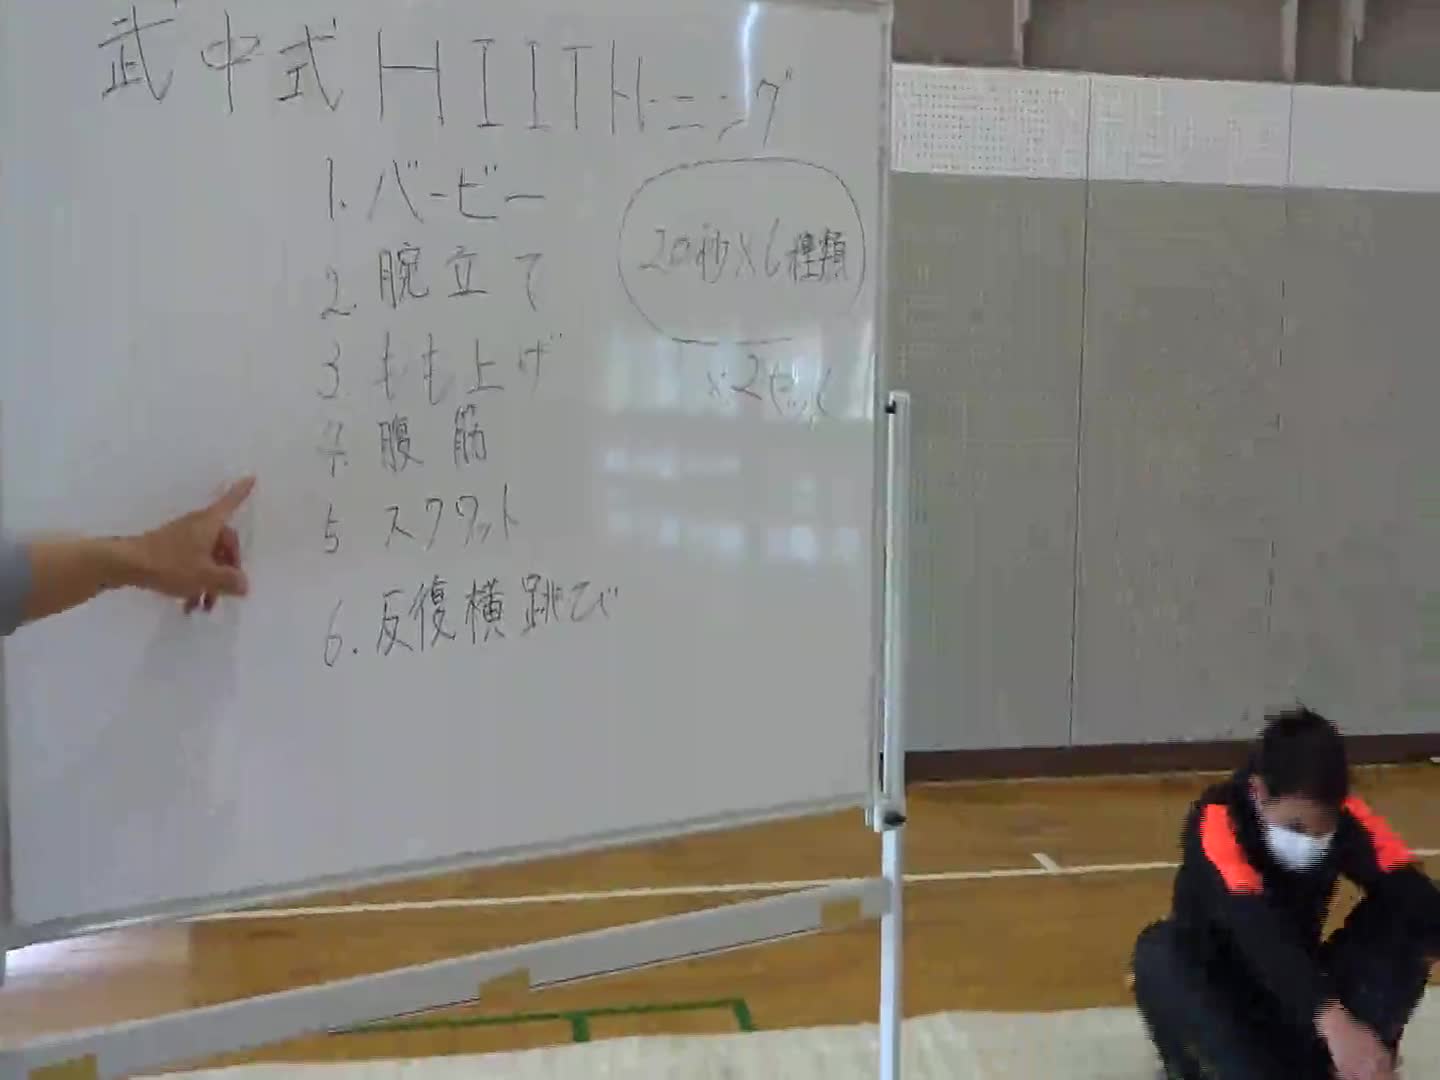 武中式HIITトレーニング
1. バービー
2. 腕立て
3. もも上げ
4. 腹筋
5 スクワット
6. 反復横跳び
20秒×6種類
×2セット